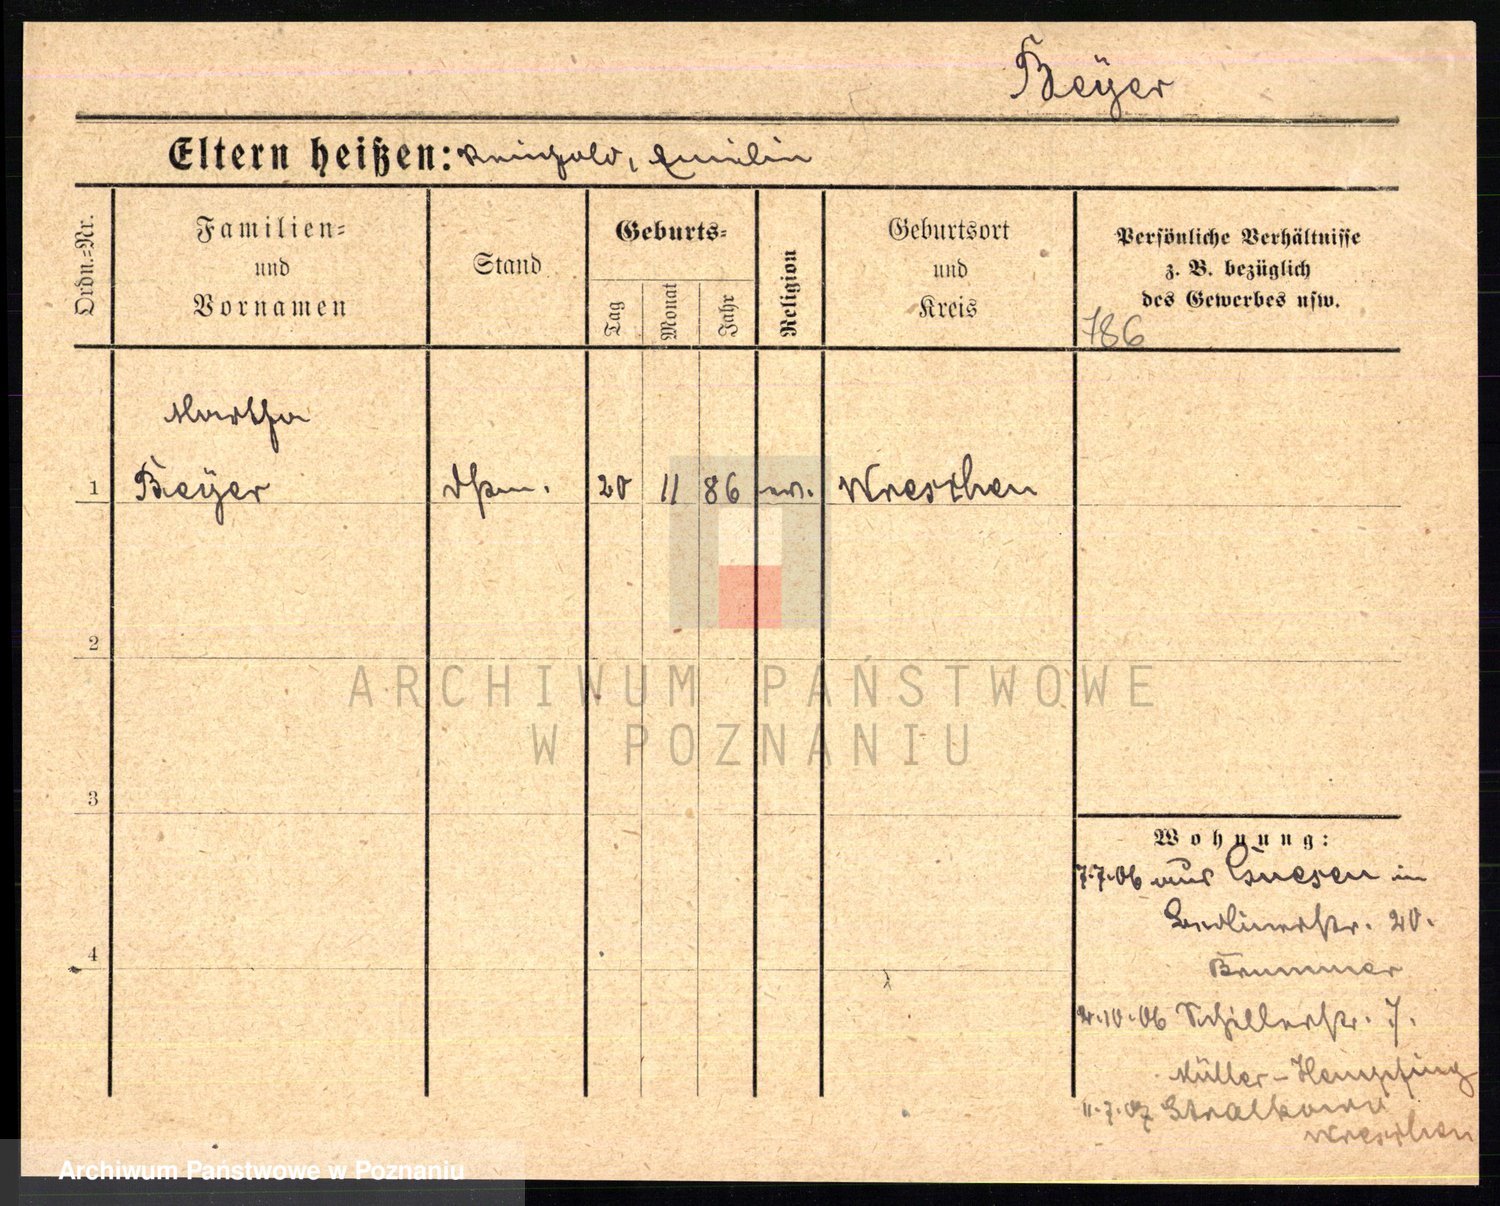 Beÿer
Eltern heißen: Reinhold, Emilie
Ordn.-Nr.
Familien- und Vornamen
Stand
Geburts-
Tag
Monat
Jahr
Religion
Geburtsort und Kreis
Persönliche Verhältnisse
z. B. bezüglich
des Gewerbes usw.
786
Martha
1 Beÿer 20 11 86 ev. Wreschen
2
ARCHIWUM PAŃSTWOWE
W POZNANIU
3
Wohnung:
7.7.06 aus Gnesen in
Berlinerstr. 20.
Brummer
2.10.06 Schillerstr. 7.
Müller-Hempfing
11.7.07 Stralkowo
Wreschen
4
Archiwum Państwowe w Poznaniu